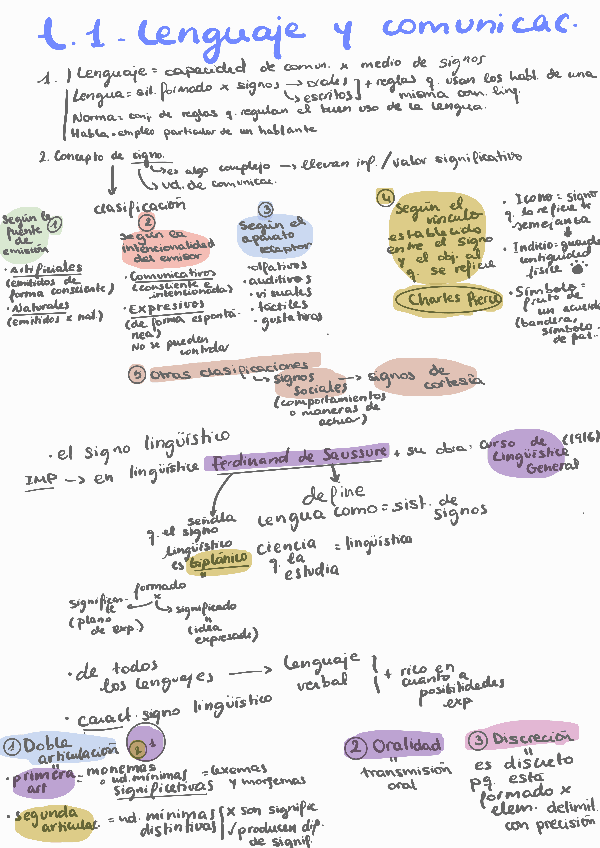 t.1- lenguaje y comunicac.
1. Lenguaje = capacidad de comun. x medio de signos
Lengua = sist. formado x signos → orales + reglas q. usan los habl. de una
↳ escritos misma com. ling.
Norma = conj. de reglas q. regulan el buen uso de la lengua.
Habla = empleo particular de un hablante
2. Concepto de signo.
↳ es algo complejo → llevan inf. / valor significativo
↳ ud. de comunicac.
clasificación
Según la ①
fuente
de
emisión
• artificiales
(emitidos de
forma consciente)
• Naturales
(emitidos x nat.)
②
según la
intencionalidad
del emisor
• Comunicativos
(consciente e
intencionada)
• Expresivos
(de forma espontá-
nea)
No se pueden
controlar
③
Según el
aparato
receptor
• olfativos
• auditivos
• visuales
• táctiles
• gustativos
④
Según el
vínculo
establecido
entre el signo
y el obj. al
q. se refiere
Charles Pierce
• Icono = signo
q. lo refiere x
semejanza
• Indicio = guarda
contiguidad
física
• Símbolo =
fruto de
un acuerdo
(bandera,
símbolo
de paz..
⑤ Otras clasificaciones
↳ signos → signos de
sociales cortesía
(comportamientos
o maneras de
actuar)
• el signo lingüístico
IMP → en lingüística Ferdinand de Saussure + su obra: curso de (1916)
Lingüística
General
señala
q. el signo
lingüístico
es biplánico
define
lengua como = sist. de
signos
ciencia = lingüística
q. la
estudia
formado
x
significan-
te
(plano
de exp.)
significado
(idea
expresada)
• de todos
los lenguajes → lenguaje
verbal + rico en
cuanto a
posibilidades
exp
• caract. signo lingüístico
① Doble
articulación 2 1
• primera = monemas = lexemas
art o ud. mínimas y morfemas
significativas
• segunda = ud. mínimas x son signific
articulac distintivas ✓ producen dif.
de signif.
② Oralidad
transmisión
oral
③ Discreción
es discreto
pq. está
formado x
elem. delimit.
con precisión